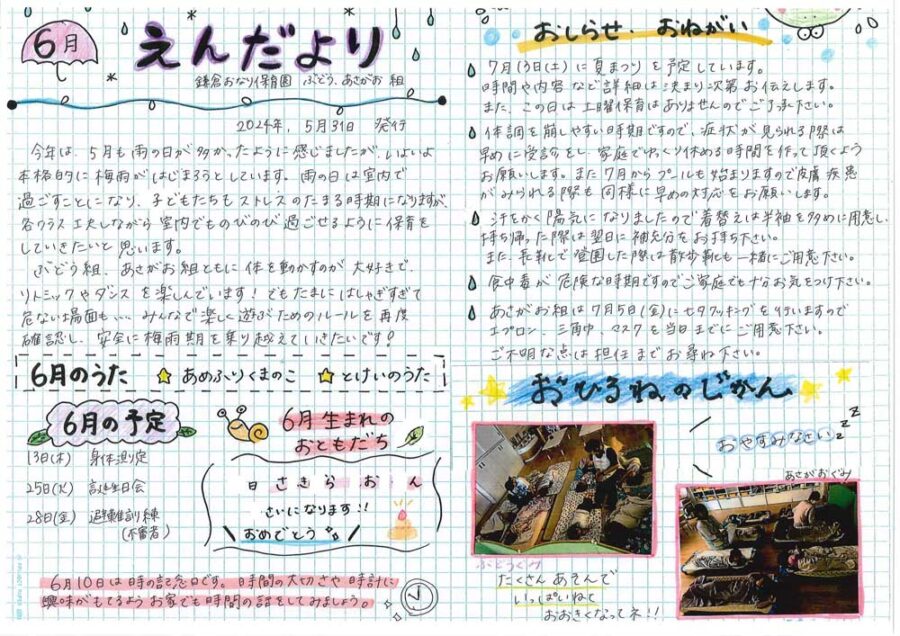 6月
えんだより
鎌倉おなり保育園 ぶどう、あさがお 組
2024年、5月31日 発行
今年は、5月も雨の日が多かったように感じましたが、いよいよ
本格的に梅雨がはじまろうとしています。雨の日は室内で
過ごすことになり、子どもたちもストレスのたまる時期になりますが、
各クラス工夫しながら室内でものびのび過ごせるように保育を
していきたいと思います。
ぶどう組、あさがお組ともに体を動かすのが大好きで、
リトミックやダンスを楽しんでいます!でもたまにはしゃぎすぎて
危ない場面も...みんなで楽しく遊ぶためのルールを再度
確認し、安全に梅雨期を乗り越えていきたいです!
6月のうた ☆あめふりくまのこ ☆とけいのうた
6月の予定
13日(木) 身体測定
25日(火) 誕生日会
28日(金) 避難訓練
(不審者)
6月生まれの
おともだち
日 さ き ら お ん
さいになります!!
\おめでとう/
6月10日は時の記念日です。時間の大切さや時計に
興味がもてるようお家でも時間の話をしてみましょう。
おしらせ、おねがい
7月13日(土)に夏まつりを予定しています。
時間や内容など詳細は決まり次第お伝えします。
また、この日は土曜保育はありませんのでご了承下さい。
体調を崩しやすい時期ですので、症状が見られる際は
早めに受診をし、家庭でゆっくり休める時間を作って頂くよう
お願いします。また7月からプールも始まりますので皮膚疾患
がみられる際も同様に早めの対応をお願いします。
汗をかく陽気になりましたので着替えは半袖を多めに用意し、
持ち帰った際は翌日に補充分をお持ち下さい。
また、長靴で登園した際は散歩靴も一緒にご用意下さい。
食中毒が危険な時期ですのでご家庭でも十分お気をつけ下さい。
あさがお組は7月5日(金)に七夕クッキングを行いますので
エプロン、三角巾、マスクを当日までにご用意下さい。
ご不明な点は担任までお尋ね下さい。
おひるねのじかん
おやすみなさい zzz
あさがおぐみ
ぶどうぐみ
たくさんあそんで
いっぱいねて
おおきくなってネ!!